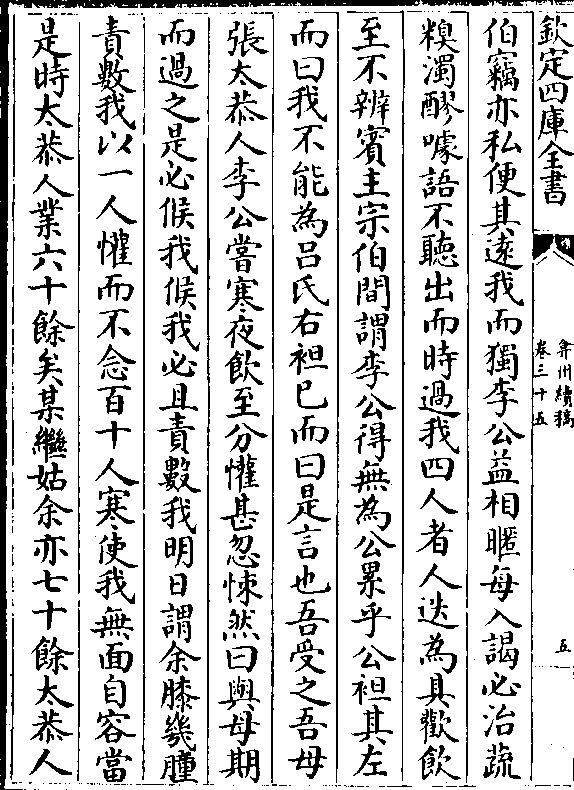 欽定四庫全書
弇州續稿
卷三十五
五
伯竊亦私便其遠我而獨李公益相暱每入謁必治蔬
糗濁醪噱語不聽出而時過我四人者人迭為具歡飲
至不辨賓主宗伯間謂李公得無為公累乎公袒其左
而曰我不能為吕氏右袒已而曰是言也吾受之吾母
張太恭人李公嘗寒夜飲至分懽甚忽悚然曰與母期
而過之是必候我候我必且責數我明日謂余膝幾腫
責數我以一人懽而不念百十人寒使我無面自容當
是時太恭人業六十餘矣某繼姑余亦七十餘太恭人